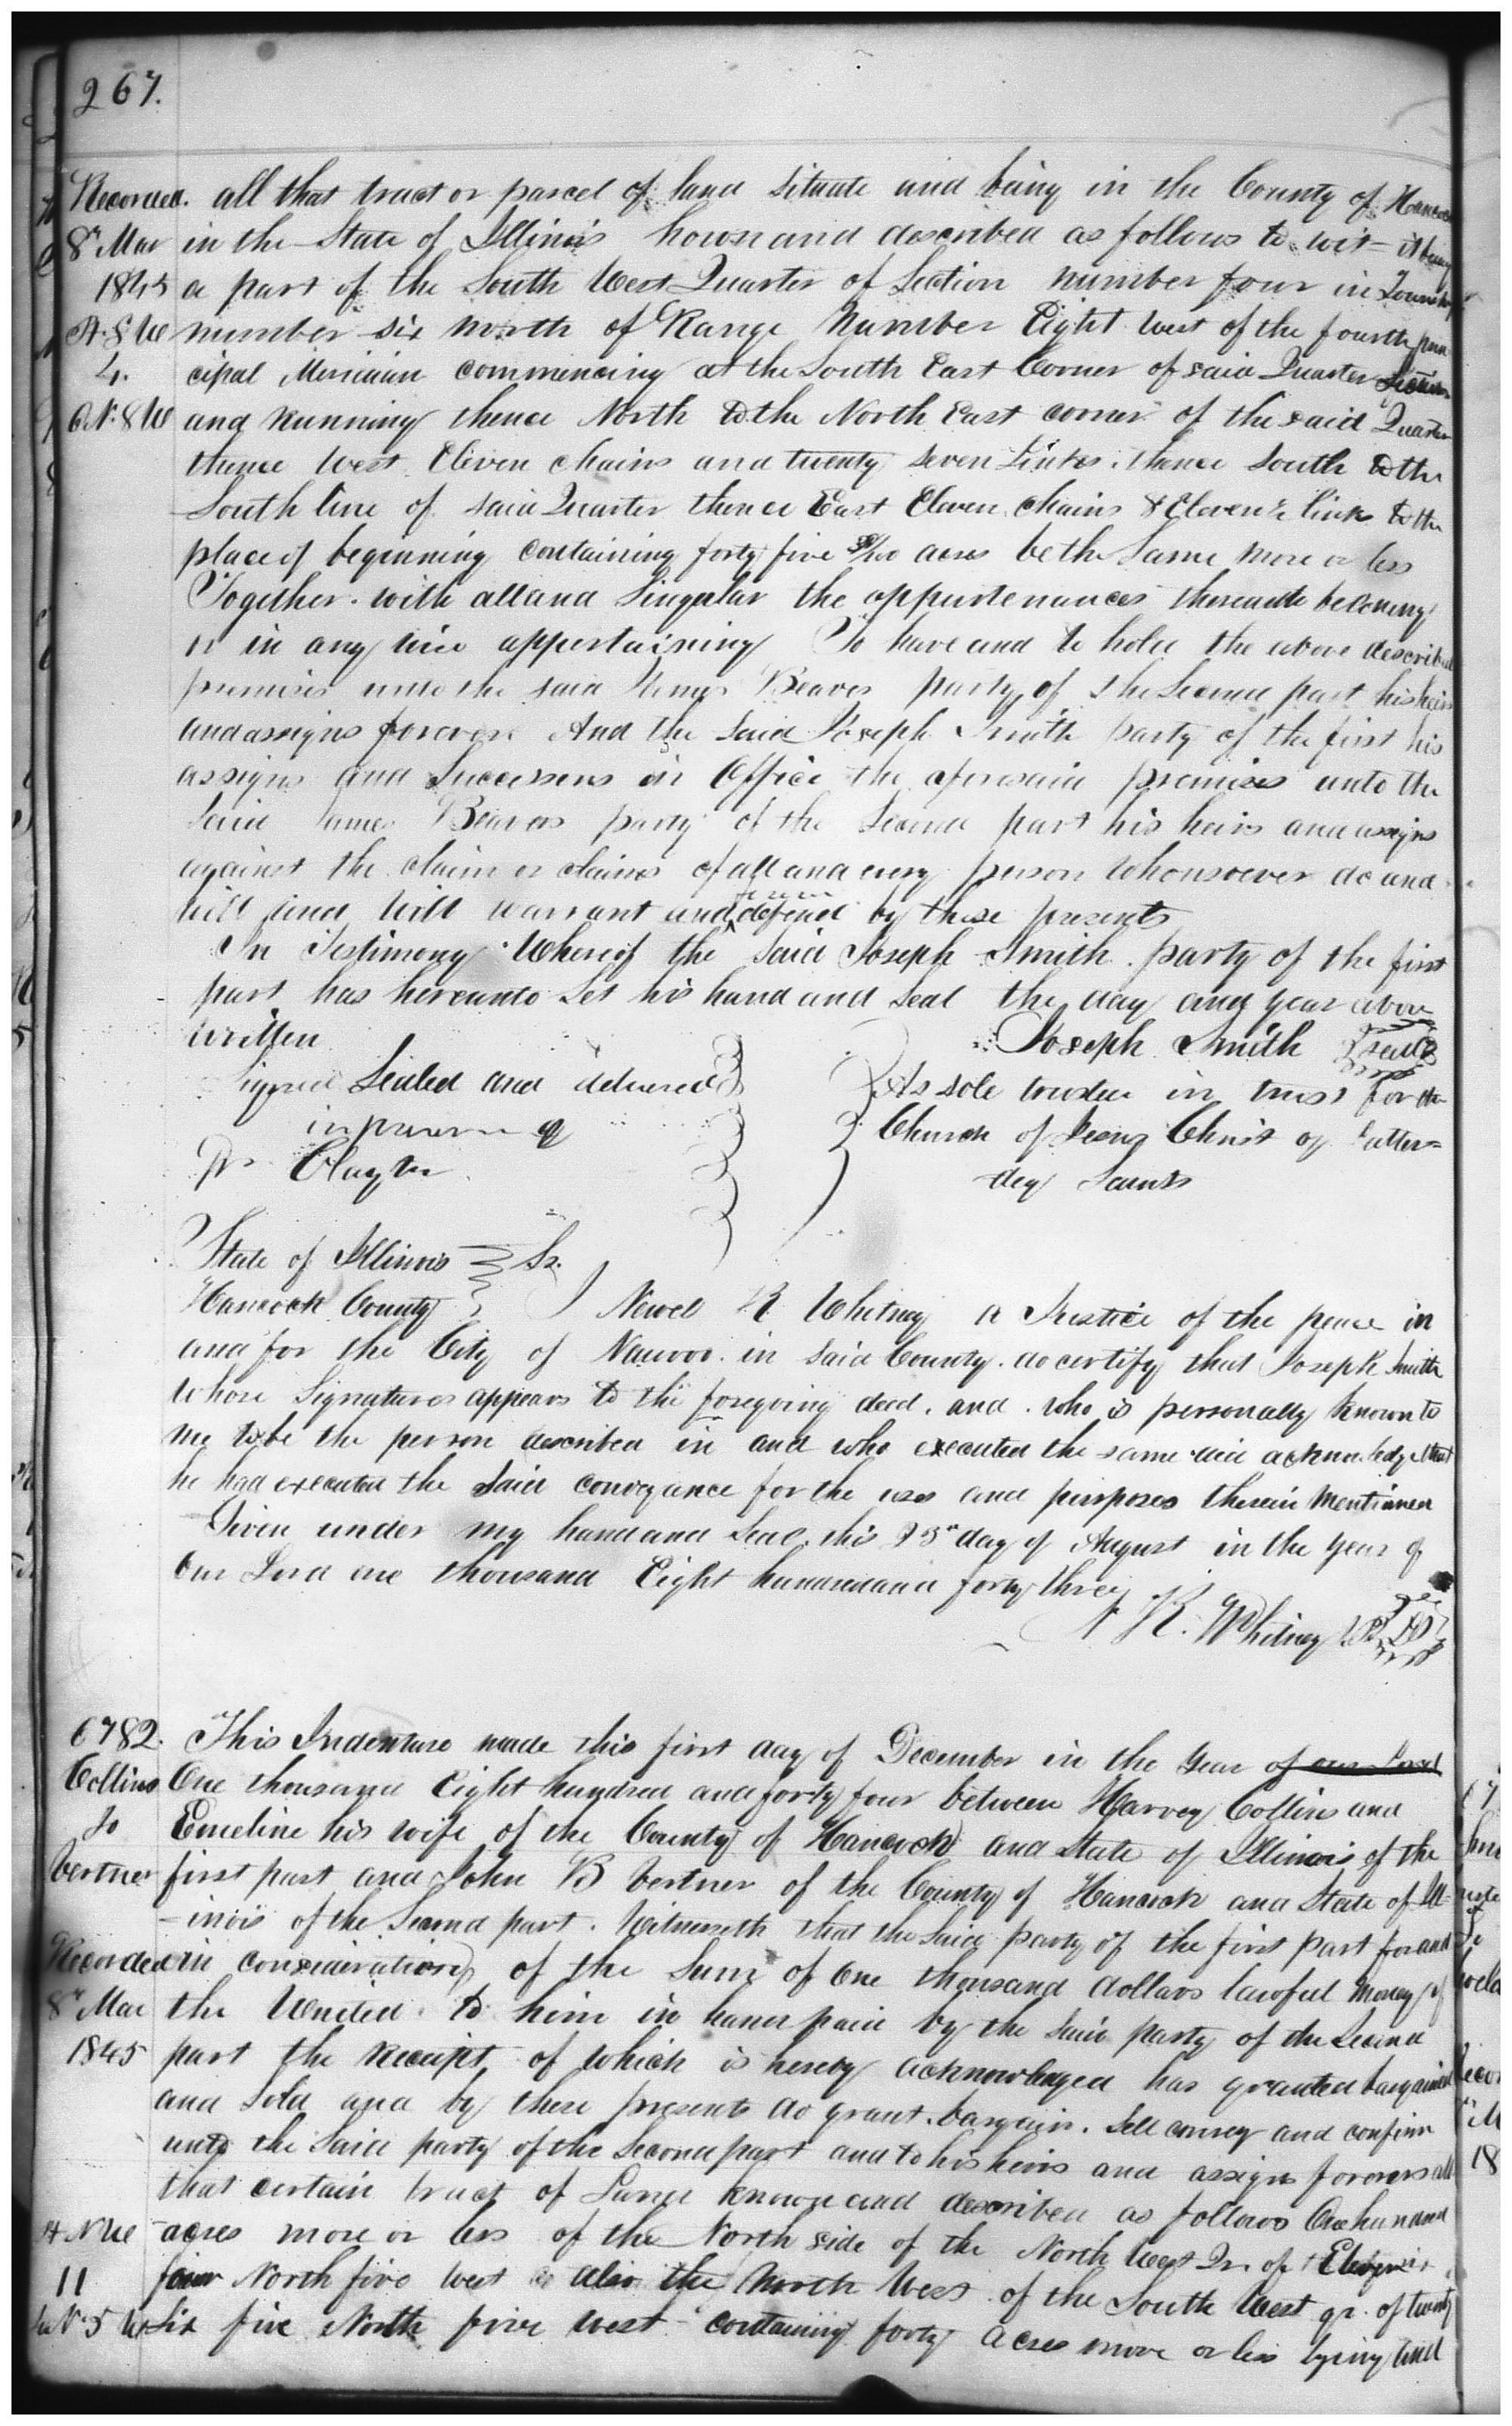 267.
Recorded. all that tract or parcel of land situate and being in the County of Hancock
8th Mar in the State of Illinois known and described as follows to wit = it being
1845 a part of the South West Quarter of Section number four in Township
Pt. S W number six north of Range Number Eight West of the fourth prin
4. cipal Meridian commencing at the South East Corner of said Quarter Section
6 N. 8 W and Running thence North to the North East corner of the said Quarter
thence West Eleven chains and twenty seven Links. thence South to the
South line of said Quarter thence East Eleven chains & Eleven links to the
place of beginning containing forty five /100 acres be the Same more or less
Together with all and Singular the appurtenances thereunto belonging
or in any wise appertaining To have and to hold the above described
premises unto the said James Beaver party of the Second part his heirs
and assigns forever. And the Said Joseph Smith party of the first his
assigns and Successors in Office the aforesaid premises unto the
Said James Beaver party of the Second part his heirs and assigns
against the claim or claims of all and every person Whomsoever do and
will and Will warrant and defend by these presents
In Testimony Whereof the Said Joseph Smith party of the first
part has hereunto Set his hand and Seal the day and year above
written Joseph Smith seal
Signed Sealed and delivered As sole trustee in trust for the
in presence of Church of Jesus Christ of Latter=
Clayton day Saints
State of Illinois Ss.
Hancock County I Newel K Whitney a Justice of the peace in
and for the City of Nauvoo in Said County do certify that Joseph Smith
Whose Signature appears to the foregoing deed. and who is personally known to
me to be the person described in and who executed the same did acknowledge that
he had executed the Said conveyance for the uses and purposes therein Mentioned
Given under my hand and Seal this 25th day of August in the Year of
Our Lord one thousand Eight hundred and forty three
N. K. Whitney J.P.
6782. This Indenture made this first day of December in the Year of our Lord
Collins One thousand Eight hundred and forty four between Harvey Collins and
To Emeline his wife of the County of Hancock and State of Illinois of the
Vertner first part and John B Vertner of the County of Hancock and State of Ill-
-inois of the Second part. Witnesseth that the Said party of the first part for and
Recorded in consideration of the Sum of One thousand dollars lawful Money of
8th Mar the United to him in hand paid by the Said party of the Second
1845 part the Receipt of which is hereby acknowledged has granted bargained
and Sold and by these presents do grant. bargain. Sell convey and confirm
unto the Said party of the Second part and to his heirs and assigns forever all
that certain tract of Land known and described as follows One hundred
Pt N W acres more or less of the North side of the North West Qr. of Eleven
11 four North five West also the North West of the South West qr. of twenty
4 N 5 W Six five North five West containing forty acres more or less lying and